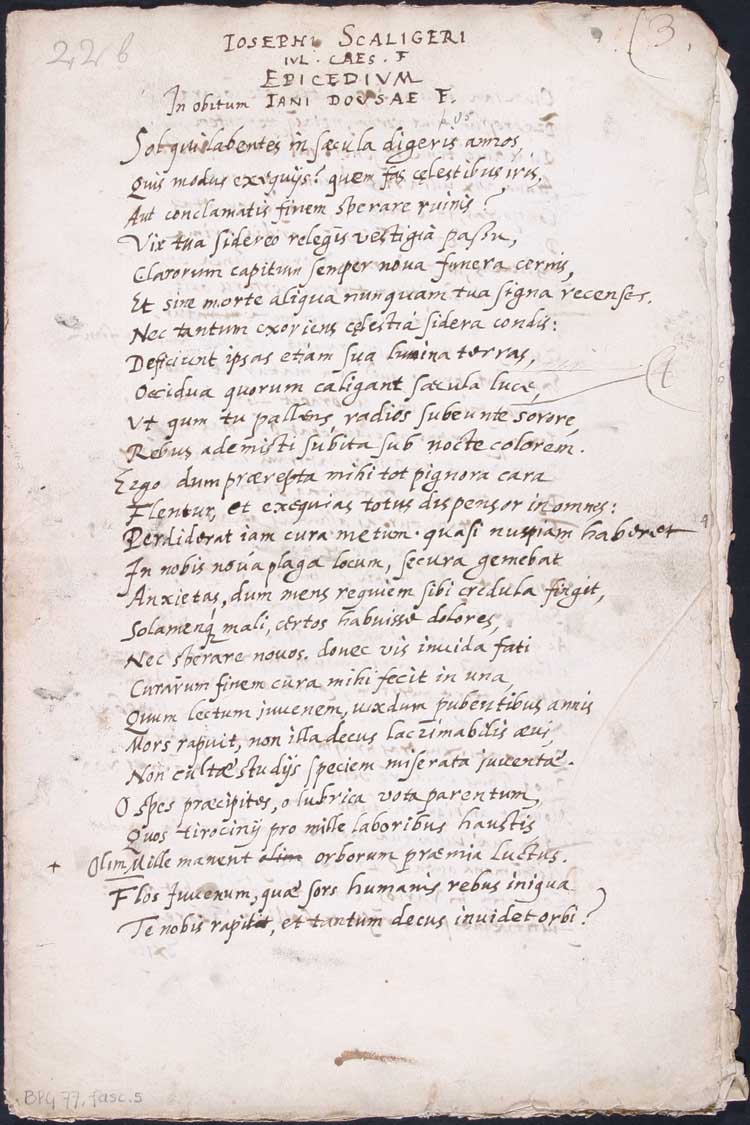 22 b
(3.
IOSEPHI SCALIGERI
IVL. CAES. F
EPICEDIVM
In obitum IANI DOVSAE F.
Sol qui labentes in sæcula digeris annos,
Quis modus exequijs? quem fas cęlestibus iris,
Aut conclamatis finem sperare ruinis?
Vix tua sidereo relegis vestigia passu,
Clarorum capitum semper nova funera cernis,
Et sine morte aliqua nunquam tua signa recenses.
Nec tantum exoriens cęlestia sidera condis:
Deficiunt ipsas etiam sua lumina terras,
Occidua quorum caligant sæcula luce,
Vt qum tu pallens, radios subeunte sorore,
Rebus ademisti subita sub nocte colorem.
Ergo dum prærepta mihi tot pignora cara
Flentur, et exequias totus dispensor in omnes:
Perdiderat iam cura metum. quasi nuspiam haberet
In nobis nova plaga locum, secura gemebat
Anxietas, dum mens requiem sibi credula fingit,
Solamenq mali, certos habuisse dolores,
Nec sperare novos. donec vis invida fati
Curarum finem cura mihi fecit in una,
Quum lectum juvenem, vixdum pubentibus annis
Mors rapuit, non illa decus lacrimabilis ævi,
Non cultæ studijs speciem miserata juventæ.
O spes præcipites, o lubrica vota parentum,
Quos tirocinij pro mille laboribus haustis
+ Olim Mille manent olim orborum præmia luctus.
Flos Juvenum, quæ sors humanis rebus iniqua
Te nobis rapuit, et tantum decus invidet orbi?
BPG 77, fasc. 5